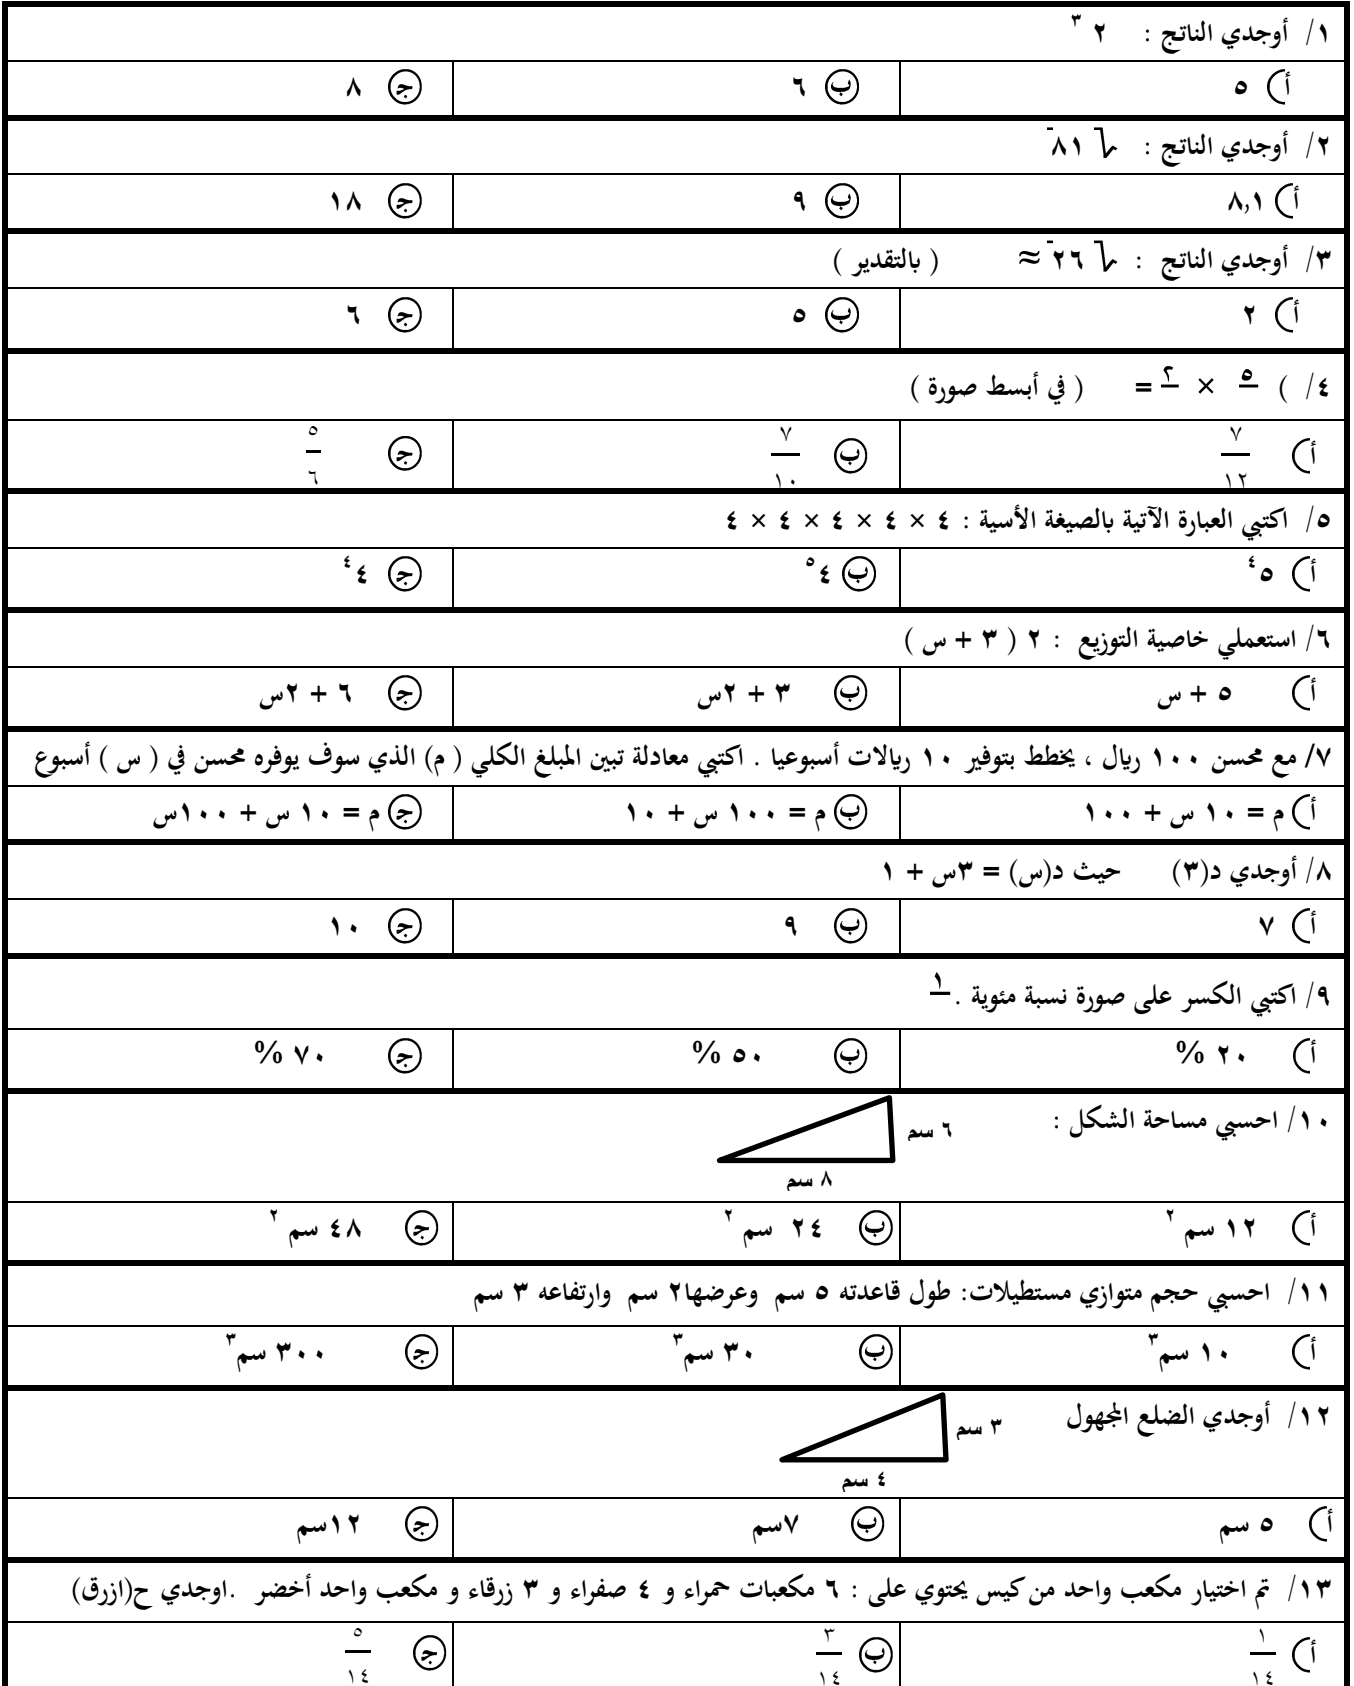 ١/ أوجدي الناتج : ٢ ٣
أ) ٥ ب ٦ ج ٨
٢/ أوجدي الناتج : √ ٨١
أ) ٨,١ ب ٩ ج ١٨
٣/ أوجدي الناتج : √ ٢٦ ≈ ( بالتقدير )
أ) ٢ ب ٥ ج ٦
٤/ ) ٥ × ٢ = ( في أبسط صورة )
أ) ٧/١٢ ب ٧/١٠ ج ٥/٦
٥/ اكتبي العبارة الآتية بالصيغة الأسية : ٤ × ٤ × ٤ × ٤ × ٤
أ) ٥ ٤ ب ٤ ٥ ج ٤ ٤
٦/ استعملي خاصية التوزيع : ٢ ( ٣ + س )
أ) ٥ + س ب ٣ + ٢س ج ٦ + ٢س
٧/ مع محسن ١٠٠ ريال ، يخطط بتوفير ١٠ ريالات أسبوعيا . اكتبي معادلة تبين المبلغ الكلي ( م) الذي سوف يوفره محسن في ( س ) أسبوع
أ) م = ١٠ س + ١٠٠ ب م = ١٠٠ س + ١٠ ج م = ١٠ س + ١٠٠س
٨/ أوجدي د(٣) حيث د(س) = ٣س + ١
أ) ٧ ب ٩ ج ١٠
٩/ اكتبي الكسر على صورة نسبة مئوية . ١
أ) ٢٠ % ب ٥٠ % ج ٧٠ %
١٠/ احسبي مساحة الشكل :
٦ سم
٨ سم
أ) ١٢ سم ٢ ب ٢٤ سم ٢ ج ٤٨ سم ٢
١١/ احسبي حجم متوازي مستطيلات: طول قاعدته ٥ سم وعرضها٢ سم وارتفاعه ٣ سم
أ) ١٠ سم٣ ب ٣٠ سم٣ ج ٣٠٠ سم٣
١٢/ أوجدي الضلع المجهول
٣ سم
٤ سم
أ) ٥ سم ب ٧سم ج ١٢سم
١٣/ تم اختيار مكعب واحد من كيس يحتوي على : ٦ مكعبات حمراء و ٤ صفراء و ٣ زرقاء و مكعب واحد أخضر .اوجدي ح(ازرق)
أ) ١/١٤ ب ٣/١٤ ج ٥/١٤